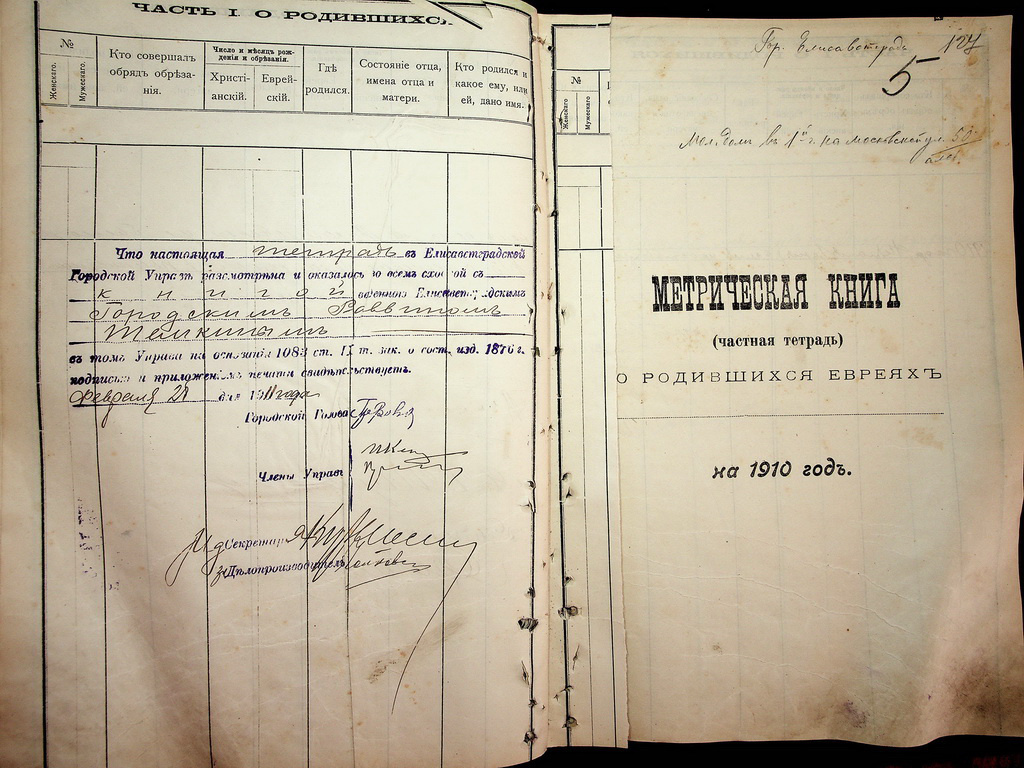 ЧАСТЬ I. О РОДИВШИХСЯ.
№
Женскаго.
Мужескаго.
Кто совершалъ
обрядъ обрѣза-
нія.
Число и мѣсяцъ рож-
денія и обрѣзанія.
Христі-
анскій.
Еврей-
скій.
Гдѣ
родился.
Состояніе отца,
имена отца и
матери.
Кто родился и
какое ему, или
ей, дано имя.
Что настоящая тетрадь въ Елисаветградской
Городской Управѣ разсмотрѣна и оказалось во всемъ сходной съ
книгой веденной Елисаветградскимъ
Городскимъ Раввиномъ
Темкинымъ
въ томъ Управа на основаніи 1083 ст. IX т. зак. о сост. изд. 1876 г.
подписью и приложеніемъ печати свидѣтельствуетъ.
Февраля 21 дня 1911 года
Городской Голова
Члены Управы
Секретарь
Дѣлопроизводитель
№
Женскаго
Мужескаго
Гор. Елисаветградъ 127
5
Мол. домъ въ 1й г. на Московской ул.
МЕТРИЧЕСКАЯ КНИГА
(частная тетрадь)
О РОДИВШИХСЯ ЕВРЕЯХЪ
на 1910 годъ.